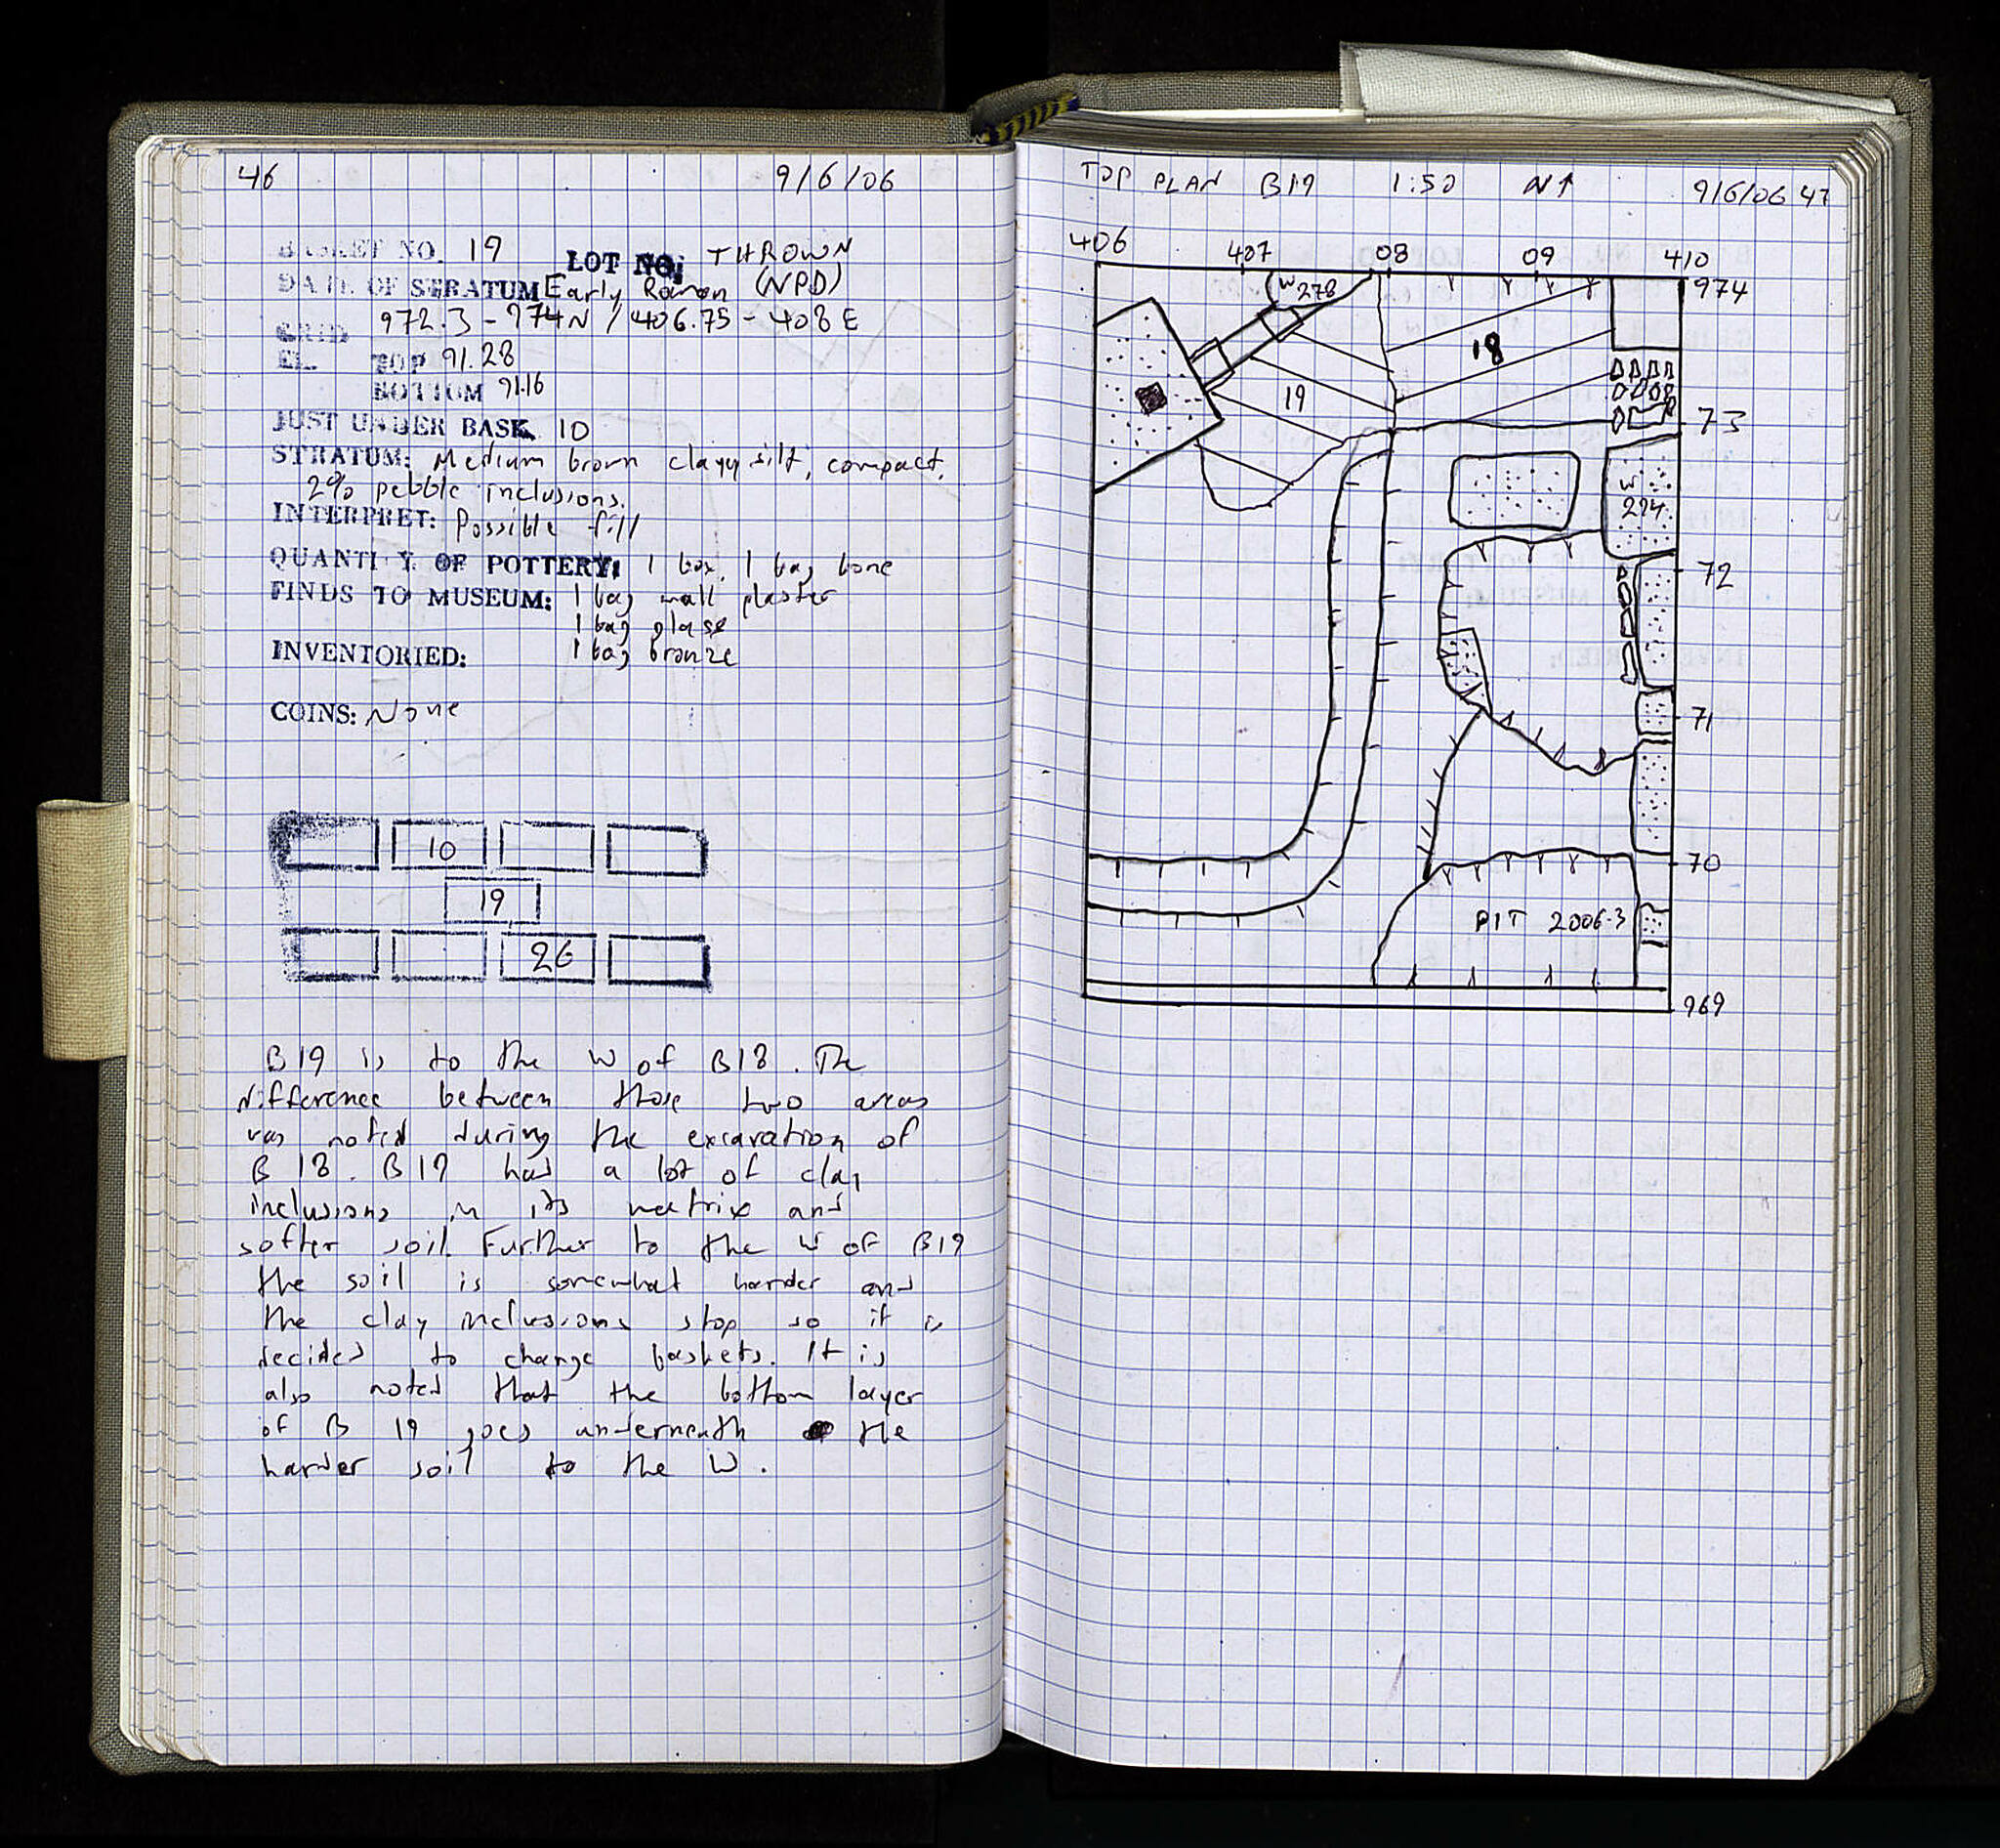 46 9/6/06
BASKET NO. 19 LOT NO: THROWN
DATE OF STRATUM Early Roman (NPD)
GRID 972.3 - 974N / 406.75 - 408 E
EL. TOP 91.28
BOTTOM 91.16
JUST UNDER BASK. 10
STRATUM: Medium brown clayey silt, compact,
2% pebble inclusions.
INTERPRET: Possible fill
QUANTITY OF POTTERY: 1 box, 1 bag bone
FINDS TO MUSEUM: 1 bag wall plaster
1 bag glass
INVENTORIED: 1 bag bronze
COINS: None
10
19
26
B19 is to the W of B18. The
difference between those two areas
was noted during the excavation of
B 18. B19 has a lot of clay
inclusions in its matrix and
softer soil. Further to the W of B19
the soil is somewhat harder and
the clay inclusions stop so it is
decided to change baskets. It is
also noted that the bottom layer
of B 19 goes underneath the
harder soil to the W.
TOP PLAN B19 1:50 N↑ 9/6/06 47
406 407 08 09 410
W 278 974
18
19
73
W
274
72
71
70
PIT 2006-3
969